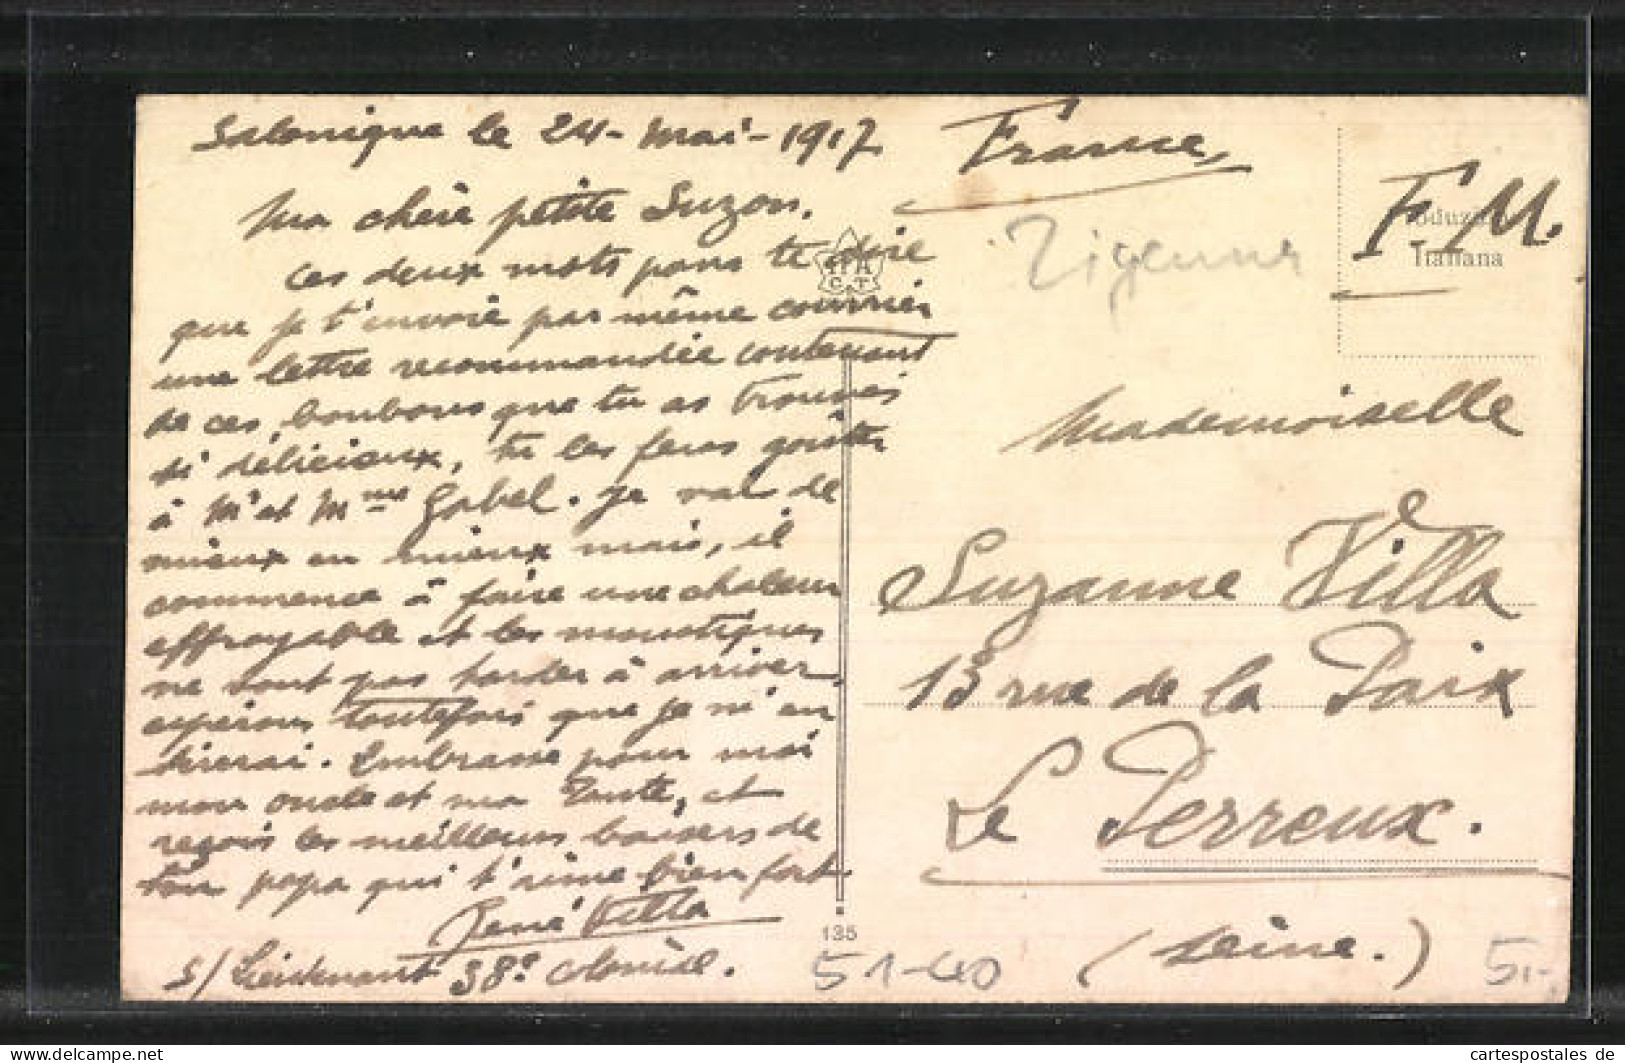 Salonique le 24 - Mai - 1917
Ma chère petite Suzon.
Ces deux mots pour te dire
que je t'envoie par même courrier
une lettre recommandée contenant
de ces bonbons que tu as trouvés
si délicieux, tu les feras goûter
à Mr et Mme Gabel. Je vais de
mieux en mieux mais, il
commence à faire une chaleur
effroyable et les moustiques
ne vont pas tarder à arriver,
espérons toutefois que je m'en
tirerai. Embrasse pour moi
mon oncle et ma Tante, et
reçois les meilleurs baisers de
ton papa qui t'aime bien fort.
René Villa
S/ Lieutenant 38e
France
F. M.
Produzione
Italiana
Zigeuner
C. T
Mademoiselle
Suzanne Villa
13 rue de la Paix
Le Perreux.
(Seine.)
135
51-40
51.-
www.cartespostales.eu
cartespostales de